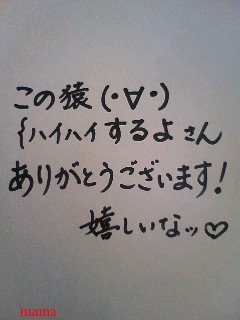 この猿(･∀･)
{ハイハイするよさん
ありがとうございます!
嬉しいなッ♡
mama